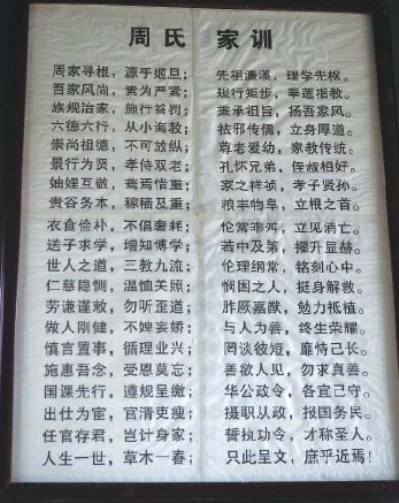 周氏 家训
周家寻根，源乎姬旦； 先祖濂溪，理学先枢。
吾家风尚，素为严紧； 规行矩步，奉莲指教。
族规治家，施行笞罚； 秉承祖旨，扬吾家风。
六德六行，从小诲教； 祛邪传儒，立身厚道。
崇尚祖德，不可放纵； 尊老爱幼，家教传统。
景行为贤，孝侍双老； 孔怀兄弟，侄叔相好。
妯娌互敬，惜重； 家之祥祯，孝子贤孙。
贵谷务本，稼穑及重； 粮丰物阜，立根之首。
衣食俭朴，不倡奢耗； 伦常乖舛，立见消亡。
送子求学，增知博学； 若中及第，擢升显赫。
世人之道，三教九流； 伦理纲常，铭刻心中。
仁慈隐恻，温恤关照； 悯困之人，挺身解救。
劳谦谨敕，勿听歪道； 嘉猷，勉力祗植。
做人刚健，不婢妄娇； 与人为善，终生荣耀。
慎言置事，循理业兴； 罔谈彼短，靡恃己长。
施惠吾念，受恩莫忘； 善欲人见，勿求真善。
国课先行，遵规呈缴； 华公政令，各宜己守。
出仕为宦，官清吏瘦； 摄职从政，报国务民。
任官存君，岂计身家； 誓执功令，才称圣人。
人生一世，草木一春； 只此呈文，庶乎近焉！